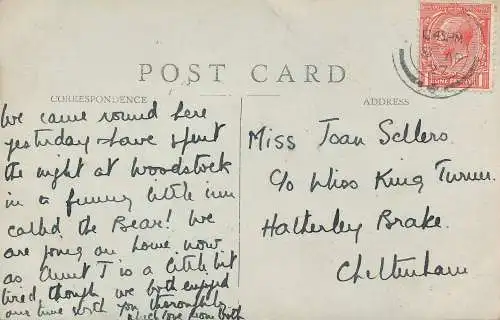 POST CARD
CORRESPONDENCE
ADDRESS
We came round here
yesterday & have spent
the night at Woodstock
in a funny little inn
called the Bear! We
are going on home now
as Aunt T is a little bit
tired, though we both enjoyed
our time with you thoroughly
much love from both
Miss Joan Sellers.
c/o Miss King Turner.
Hatherley Brake.
Cheltenham